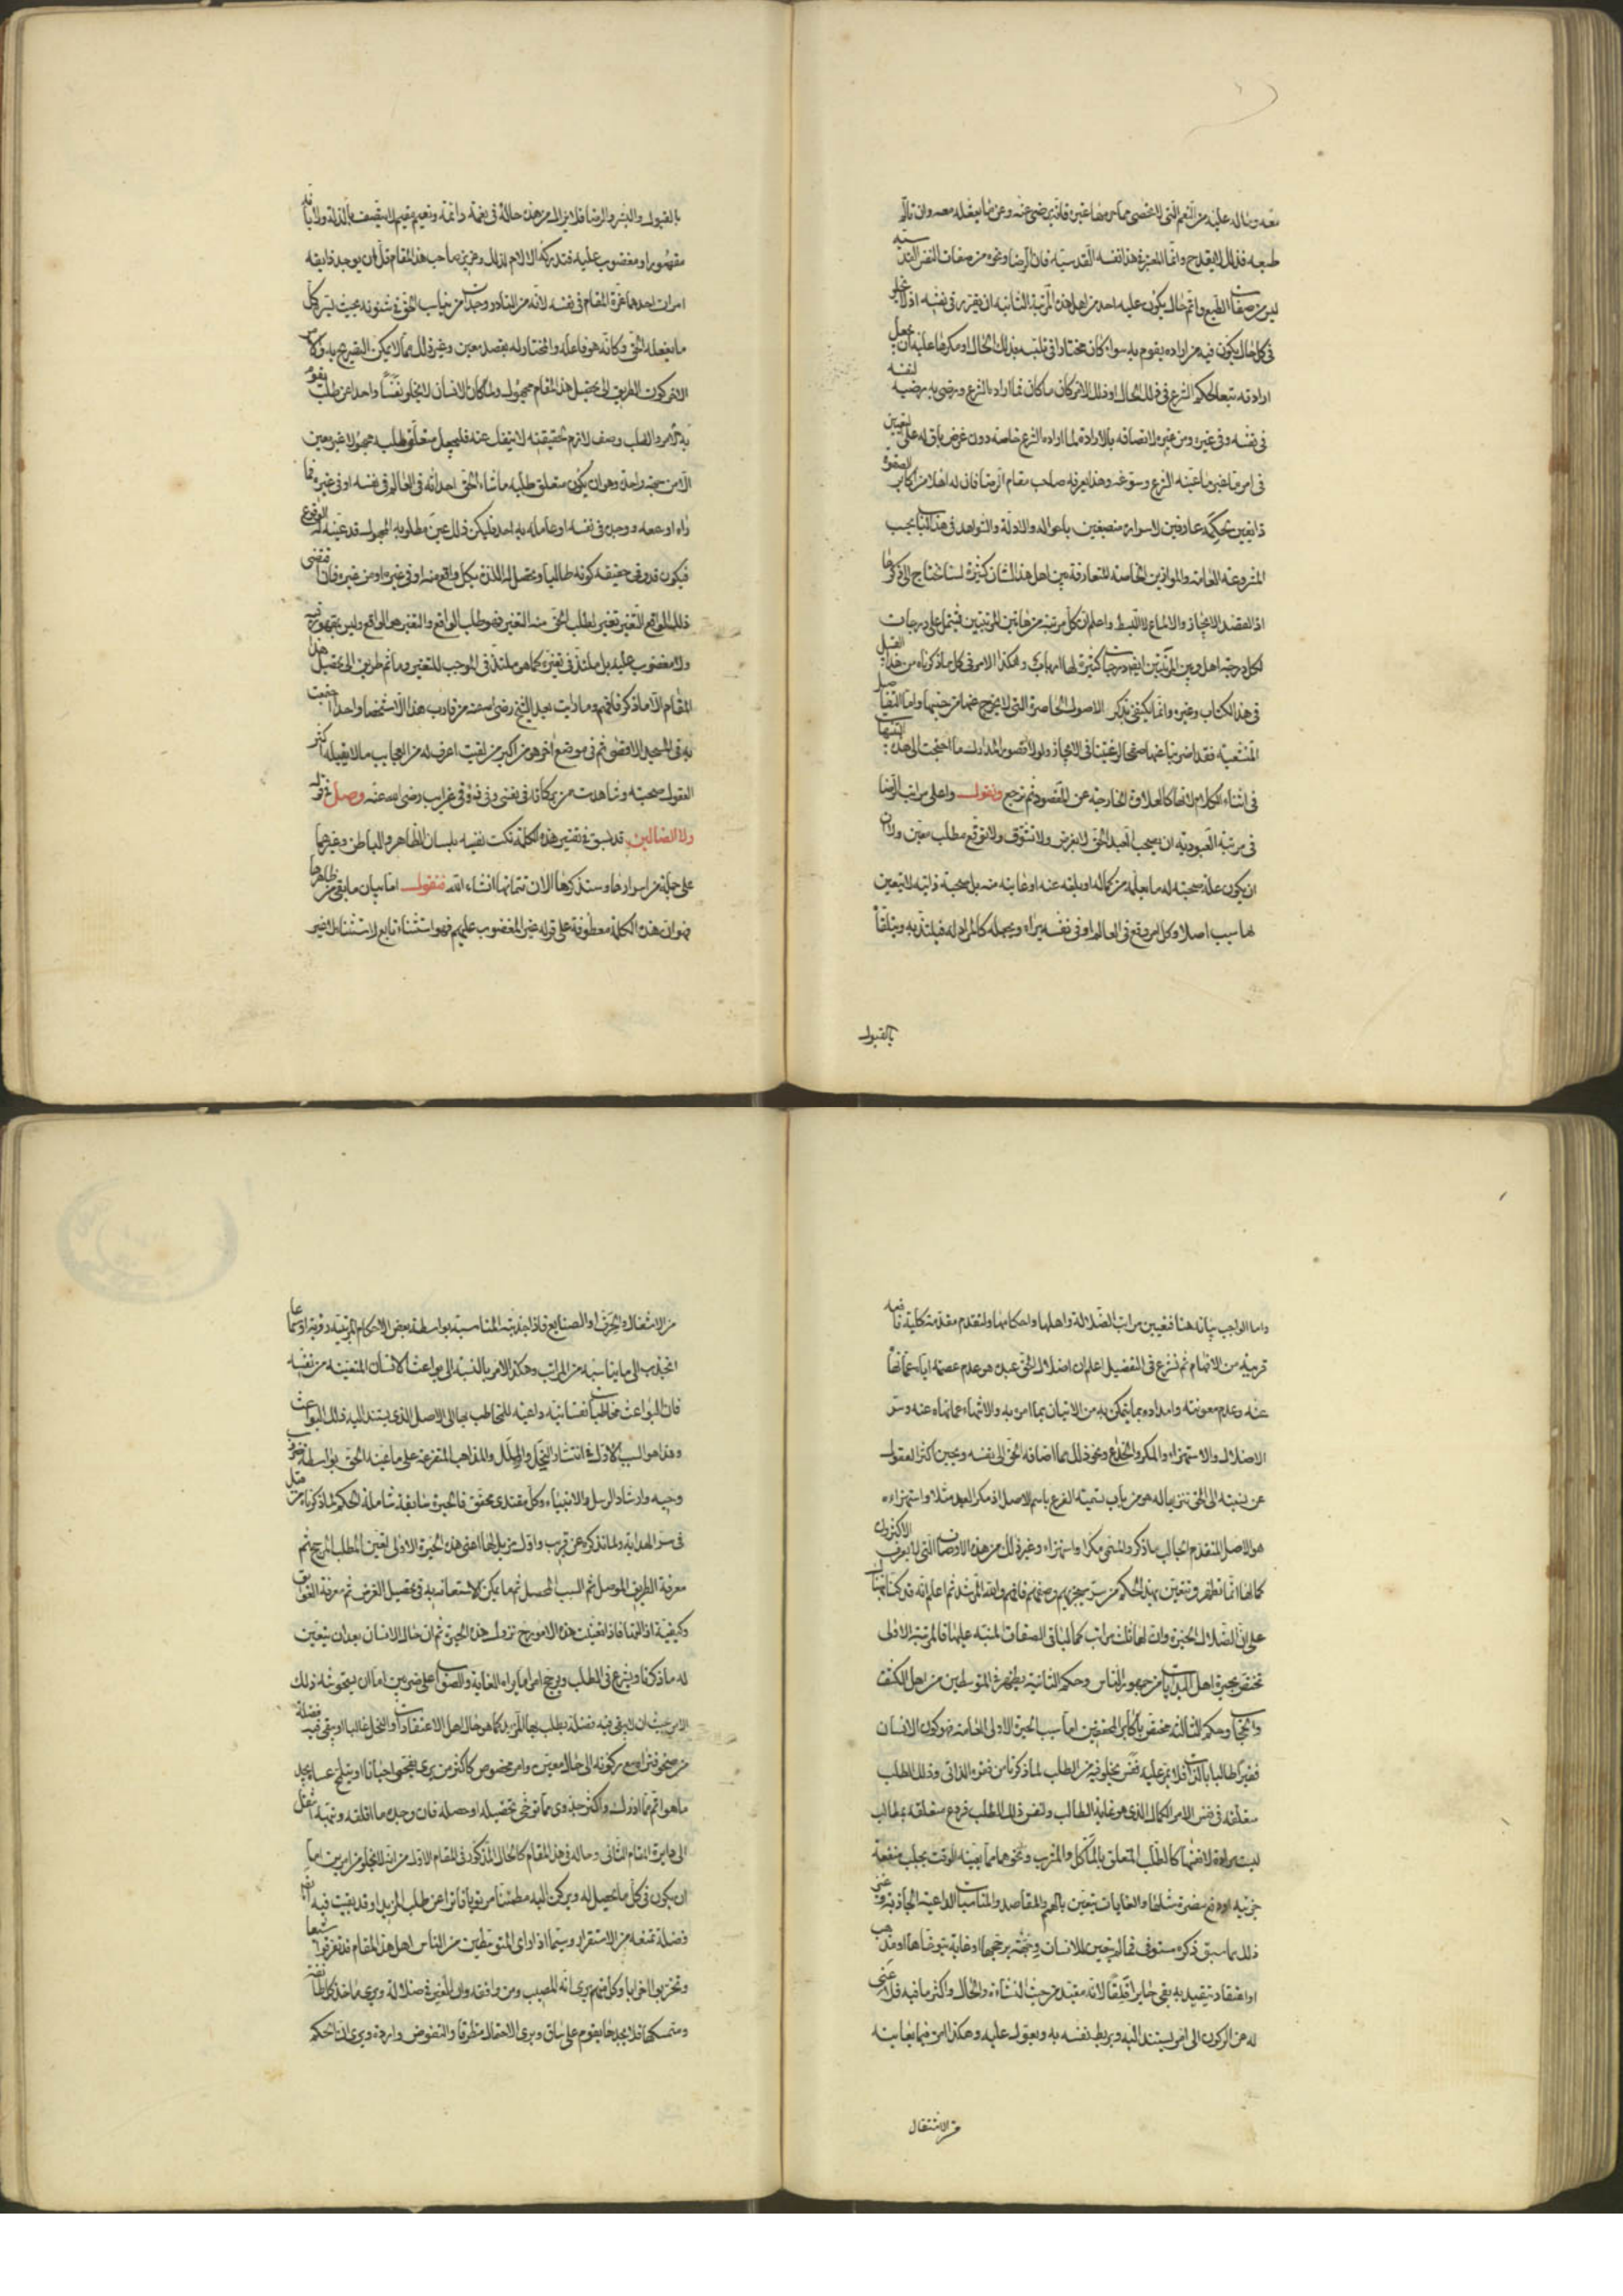 معه وماله عليه من النعم التى لا تحصى مما يرضاها غيره فانه يرضى عنه وعن ما يفعله معه وان تألم
طبعه فذلك لا يقدح وانما المعتبر هذا نفسه القدسيه فان الرضا ونحوه من صفات النفس القدسيه
ليس من صفات الطبع واتم حال يكون عليه احد من اهل هذه المرتبة الثانيه ان يقرر فى نفسه اذ لا يخلو
فى كل حال يكون فيه من اراده يقوم به سواء كان مختارا فى تلبسه بذلك الحال او مكرها عليه ان يجعل
ارادته تبعا لحكم الشرع فى ذلك الحال او ذلك الامر كان ما كان فما اراده الشرع ورضى به رضيه لنفسه
فى نفسه وفى غيره ومن غيره لاتصافه بالارادة لما اراده الشرع خاصه دون غرض باق له على التعيين
فى امر ما غير ما عينه الشرع وسوغه وهذا يعرفه صاحب مقام الرضا فان له اهلا من اكابر الصفوة
ذايقين بحكمه عارفين لاسراره منصبغين باحواله والادلة والشواهد فى هذا الباب بحسب
المشروعة العامه والموازين الخاصة المتعارفة بين اهل هذا الشان كثيرة لسنا نحتاج الى ذكرها
اذ القصد الايجاز والالماع لا البسط واعلم ان كل مرتبة من هاتين المرتبتين تشتمل على درجات
لكل درجة اهل وبين المرتبتين ايضا درجات كثيرة لها ارباب وهكذا الامر فى كل ما ذكرناه من هذا القبيل
فى هذا الكتاب وغيره وانما نكتفى بذكر الاصول الحاصرة التى لا يخرج عنها من جنسها واما التفاصيل
المتشعبه فقد اضربنا عنها صفحا لرغبتنا فى الايجاز ولولا قصور المدارك ما احتجت الى هذه التنبيهات
فى اثناء الكلام لانها كالعلاوة الخارجة عن المقصود ثم نرجع ونقول واعلى مراتب الرضا
فى مرتبة العبودية ان يصحب العبد الحق لا لغرض ولا تشوق ولا توقع مطلب معين ولا ان
ان يكون علة صحبته له ما يعلمه من كماله او بلغه عنه او عاينه منه بل صحبة ذاتيه لا يتعين
لها سبب اصلا وكل امر وقع فى العالم او فى نفسه يراه ويجعله كالمراد له فيلتذ به ويتلقاه
بالقبول
بالقبول والبشر والرضا فلا يزال من هذه حاله فى نعمة دائمة ونعيم مقيم لا يتصف بالذلة ولا بانه
مقهور او مغضوب عليه فتدركه الالام لذلك وعزيز صاحب هذا المقام قل ان يوجد ذايقه
امران احدهما عزة المقام فى نفسه لانه من النادر وجدان من يناسب الحق فى شئونه بحيث يسره كل
ما يفعله الحق وكانه هو فاعله والمختار له بقصد معين وغير ذلك مما لا يمكن التصريح به والامر
الاخر كون الطريق الى تحصيل هذا المقام مجهول ولما كان الانسان لا يخلو نفسا واحدا عن طلب يقوم
به لامر والطلب وصف لازم لحقيقته لا ينفك عنه فليجعل متعلق طلبه مجهولا غير معين
الا من جهة واحدة وهو ان يكون متعلق طلبه ما شاء الحق احداثه فى العالم فى نفسه او فى غيره فما
راه او سمعه ووجده فى نفسه او عامله به احد فليكن ذلك عين مطلوبه المجهول قد عينه له الوقوع
فيكون قد وفى حقيقة كونه طالبا ويحصل له اللذة بكل واقع منه او فى غيره او من غيره فان اقتضى
ذلك الواقع التغير تغير لطلب الحق منه التغير فهو طلب الواقع والتغير هو الواقع وليس بمقهور فيه
ولا مغضوب عليه بل ملتذ فى تغيره كما هو ملتذ فى الموجب للتغير وما ثم طريق الى تحصيل هذا
المقام الا ما ذكر فافهم وما رايت بعد الشيخ رضى الله عنه من قارب هذا الا شخصا واحدا اجتمعت
به فى المسجد الاقصى ثم فى موضع اخر هو من اكبر من لقيت اعرف له من العجايب ما لا يقبله اكثر
العقول صحبته وشاهدت من بركاته فى نفسى وفى ذوقى غرايب رضى الله عنه وصل فى قوله
ولا الضالين قد سبق فى تفسير هذه الكلمة نكت نفيسه بلسان الظاهر والباطن وغيرهما
على جملة من اسرارها وسنذكرها الان تتماتها انشاء الله فنقول اما بيان ما بقى من ظاهرها
فهو ان هذه الكلمة معطوفة على قوله غير المغضوب عليهم فهو استثناء تابع لاستثناء لا غير
واما الواجب بيانه هنا فتعيين مراتب الضلالة واهلها واحكامها ولنقدم مقدمة كلية نافعه
قريبة من الافهام ثم نشرع فى التفصيل اعلم ان اضلال الحق عبده هو عدم عصمته اياه عما نهاه
عنه وعدم معونته وامداده بما يتمكن به من الاتيان بما امر به والانتهاء عما نهاه عنه وسر
الاضلال والاستهزاء والمكر والخداع ونحو ذلك مما اضافه الحق الى نفسه ويحير اكثر العقول
عن نسبته الى الحق تنزيها له هو من باب تسمية الفرع باسم الاصل اذ مكر العبد مثلا واستهزاءه
هو الاصل المتقدم الجالب ما ذكر والمسمى مكرا واستهزاء وغير ذلك من هذه الاوصاف التى لا يعرف الاكثرون
كمالها انما تظهر وتتعين بهذا الحكم من سر سيجزيهم وصفهم فافهم والله المرشد ثم اعلم انه قد كنا نبهنا
على ان الضلال الحيرة وان لها ثلث مراتب كما لباقى الصفات المنبه عليها فالمرتبة الاولى
تختص بحيرة اهل البدايات من جمهور الناس وحكم الثانية يظهر فى المتوسطين من اهل الكشف
والحجاب وحكم الثالثة مختص باكابر المحققين اما سبب الحيرة الاولى العامة فهو كون الانسان
فقيرا طالبا بالذات فلا يمر عليه نفس يخلو فيه من الطلب لما ذكرنا من فقره الذاتى وذلك الطلب
متعلقه فى نفس الامر الكمال الذى هو غاية الطالب ولنفس ذلك الطلب فروع متعلقة بمطالب
ليست مرادة لانفسها كالطلب المتعلق بالمأكل والمشرب ونحوهما مما يعينه الوقت بجلب منفعة
جزئيه او دفع مضرة مثلها والغايات تتعين بالهمم والمقاصد والمناسبات الداعية الجاذبة وغير
ذلك مما سبق ذكره مستوفى فما لم يتعين للانسان وجهة يرجحها او غاية يتوخاها او مذهب
او اعتقاد يتقيد به بقى حايرا قلقا لانه مقيد من حيث النشاءة والحال واكثر ما فيه فلا غنى
له عن الركون الى امر يستند اليه ويربط نفسه به ويعول عليه وهكذا امره فيما يعانيه
من الاشتغال
من الاشتغال والحرف او الصنايع فاذا جذبته المناسبة بواسطة بعض الاحكام المرتبية رؤية او سماعا
انجذب الى ما يناسبه من المراتب وهكذا الامر بالنسبة الى بواعث الانسان المتعينة من نفسه
فان البواعث مخاطبات نفسانية داعية للمخاطب بها الى الاصل الذى يستند اليه ذلك البواعث
وهذا هو السبب الاول فى انتشار النحل والملل والمذاهب المتفرعة على ما عينه الحق بواسطة ضروب
وحيه وارشاد الرسل والانبياء وكل مقتدى محقق فالحيرة سابقة شاملة الحكم لما ذكرناه من قبل
فى سر الهداية ولما نذكره عن قريب واول مزيل لها اعنى هذه الحيرة الاولى تعين المطلب المرجح ثم
معرفة الطريق الموصل ثم السبب المحصل ثم ما يمكن الاستعانة به فى تحصيل الغرض ثم معرفة العوايق
وكيفية ازالتها فاذا تعينت هذه الامور ح تزول هذه الحيرة ثم ان حال الانسان بعد ان يتعين
له ما ذكرنا ويشرع فى الطلب ويرجح امرا ما يراه الغاية والصواب على ضربين اما ان يستحوذ عليه ذلك
الامر بحيث ان لا يبقى فيه فضلة يطلب بها المزيد كما هو حال اهل الاعتقادات والنحل غالبا او يبقى فيه فضلة
من صحو فتراه مع ركونه الى حال معين وامر مخصوص كاكثر من يرى يتفحص احيانا ويتلمح عساه يجد
ما هو اتم مما ادرك واكثر جدوى مما توخى تحصيله او حصله فان وجد ما اقلقه ونبهه انتقل
الى دايرة المقام الثانى وحاله فى هذا المقام كالحال المذكور فى المقام الاول من انه لا يخلو من امرين اما
ان يكون فى كل ما يحصل له ويركن اليه مطمئنا مرتويا فاترا عن طلب المزيد او قد بقيت فيه ايضا
فضلة تمنعه من الاستقرار وسيما اذا راى المتوسطين من الناس اهل هذا المقام قد تفرقوا شيعا
وتحزبوا احزابا وكل منهم يرى انه المصيب ومن وافقه وان الغير فى ضلالة ويرى ماخذ كل طائفة
ومتمسكها فلا يجدها يقوم على ساق ويرى الاحتمال متطرقا والنقوض واردة ويرى ان الحكم